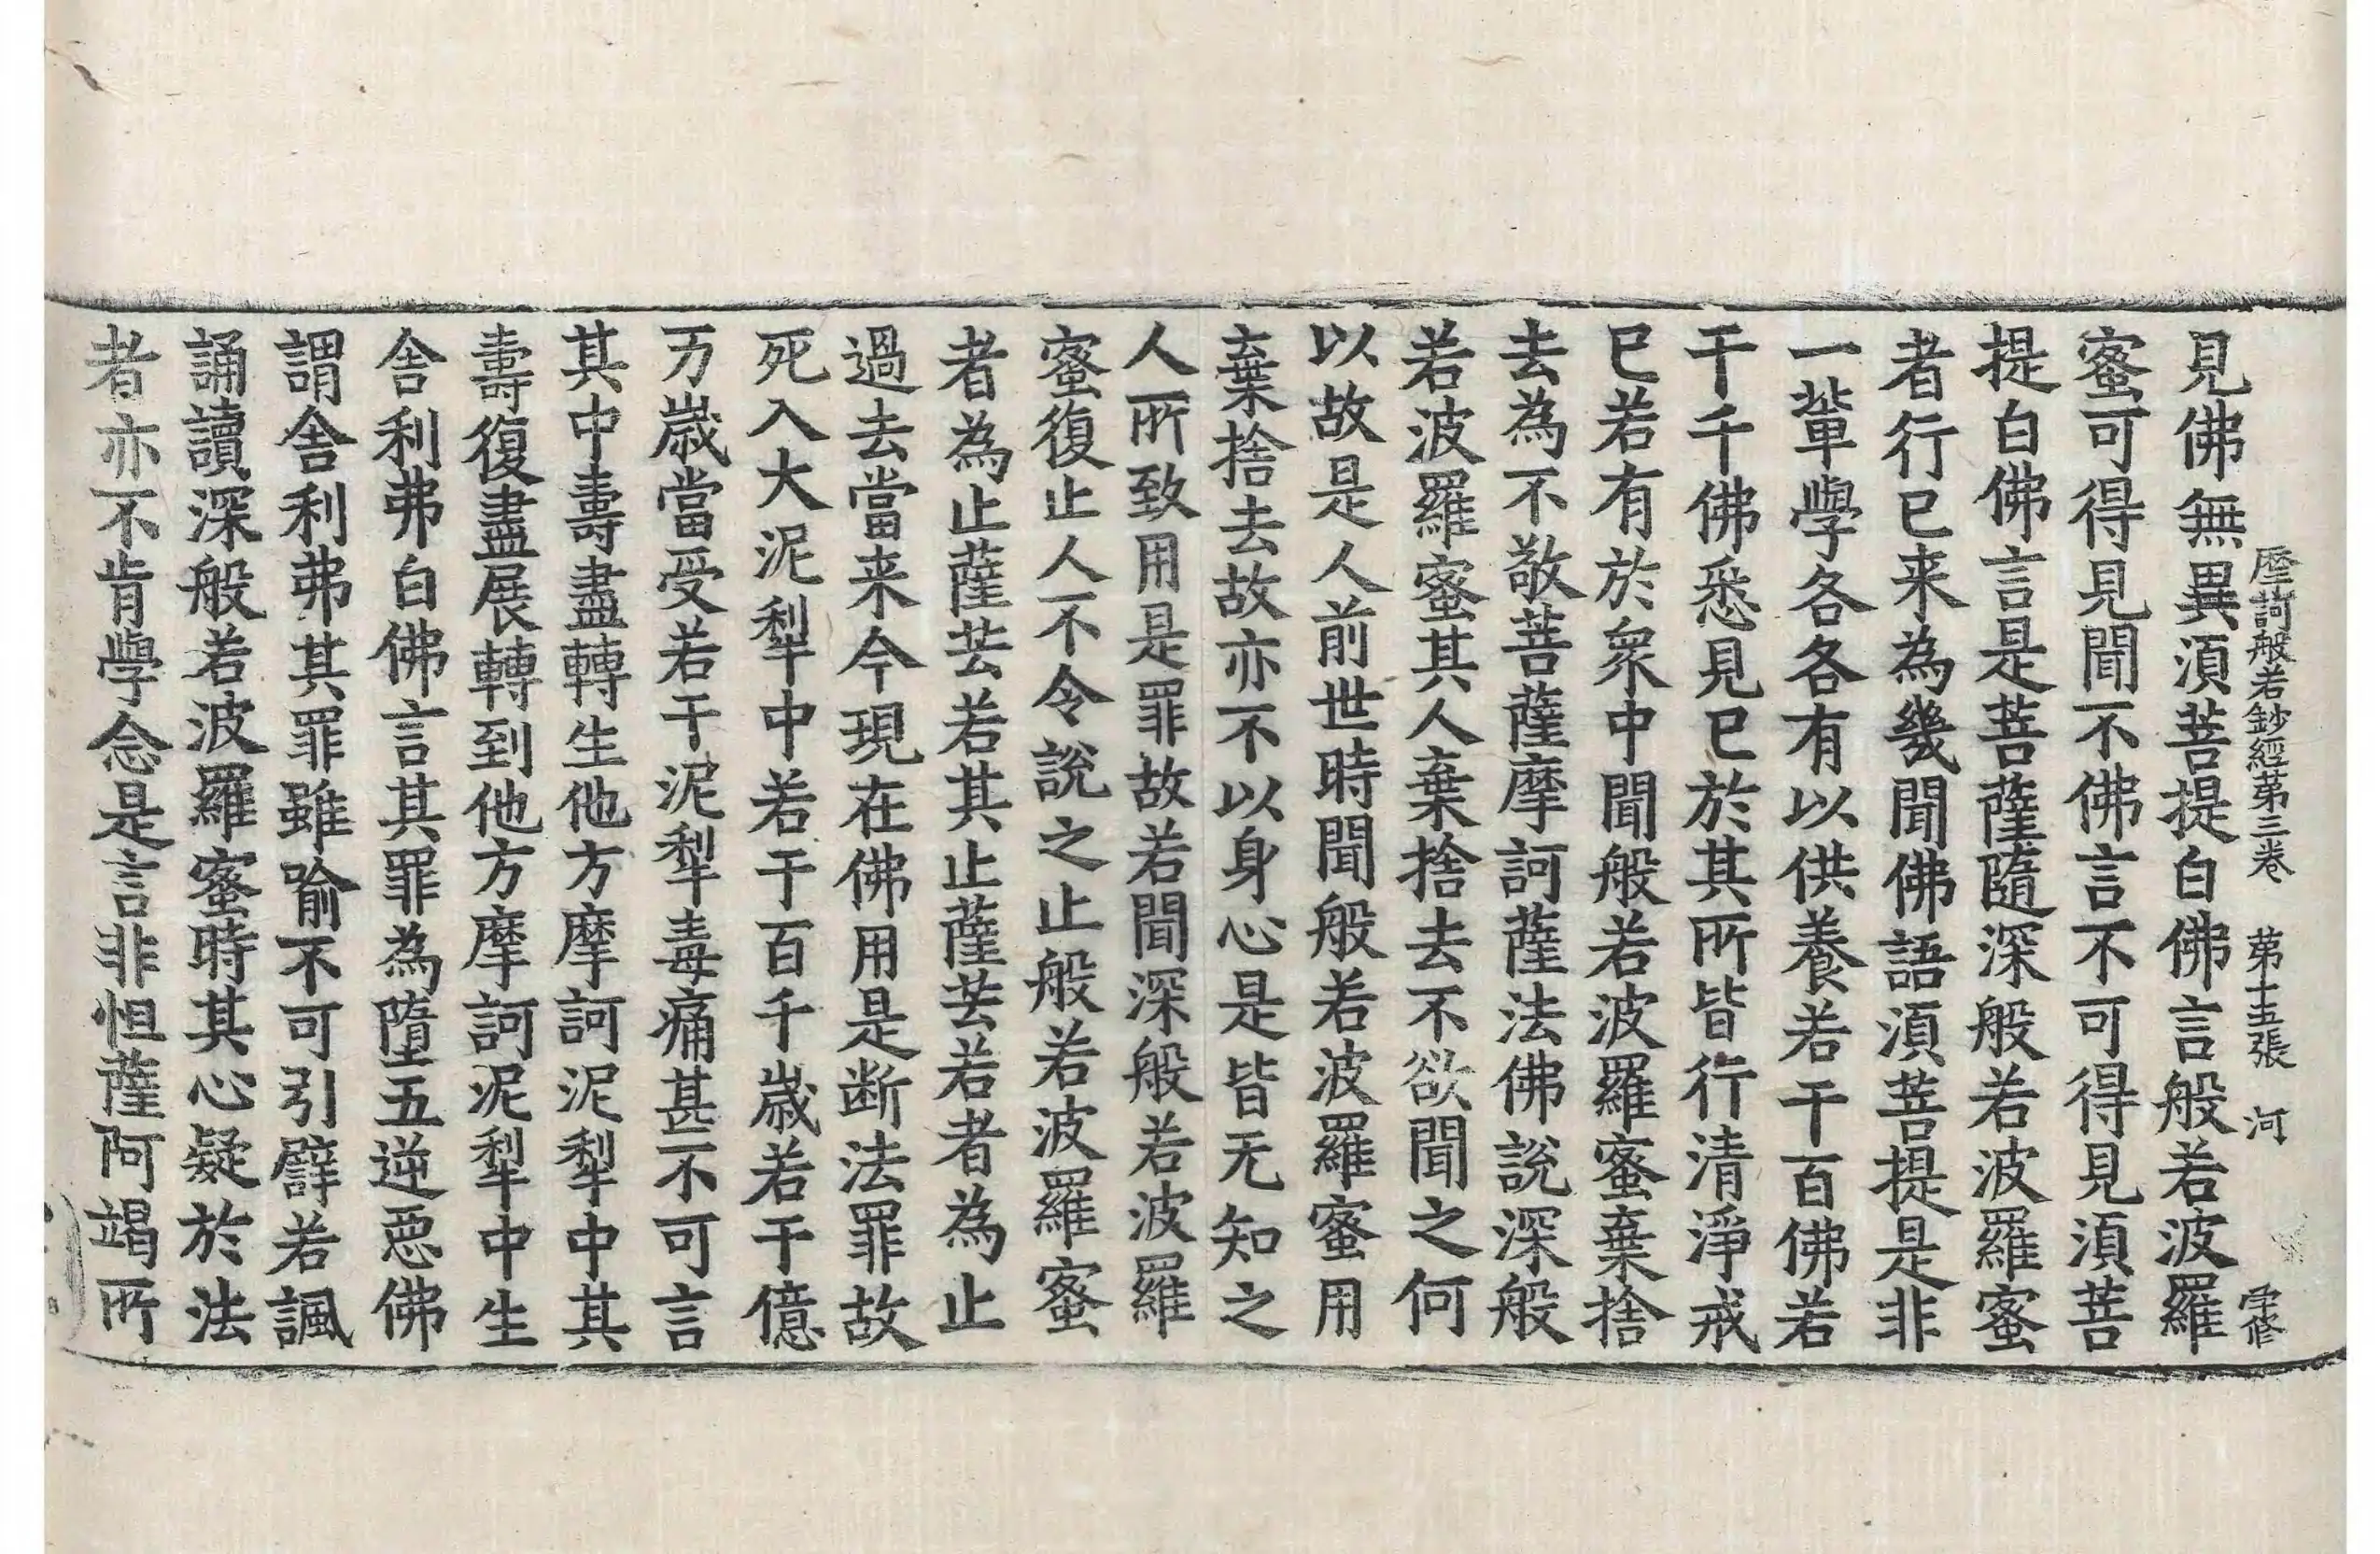 摩訶般若鈔經第三卷　第十五張　河
見佛無異須菩提白佛言般若波羅
蜜可得見聞不佛言不可得見須菩
提白佛言是菩薩隨深般若波羅蜜
者行已来為幾聞佛語須菩提是非
一輩學各各有以供養若干百佛若
干千佛悉見已於其所皆行清淨戒
已若有於衆中聞般若波羅蜜棄捨
去為不敬菩薩摩訶薩法佛說深般
若波羅蜜其人棄捨去不欲聞之何
以故是人前世時聞般若波羅蜜用
棄捨去故亦不以身心是皆无知之
人所致用是罪故若聞深般若波羅
蜜復止人不令說之止般若波羅蜜
者為止薩芸若其止薩芸若者為止
過去當来今現在佛用是断法罪故
死入大泥犁中若干百千歲若干億
万歲當受若干泥犁毒痛甚不可言
其中壽盡轉生他方摩訶泥犁中其
壽復盡展轉到他方摩訶泥犁中生
舎利弗白佛言其罪為墮五逆惡佛
謂舎利弗其罪雖喻不可引譬若諷
誦讀深般若波羅蜜時其心疑於法
者亦不肯學念是言非怛薩阿竭所